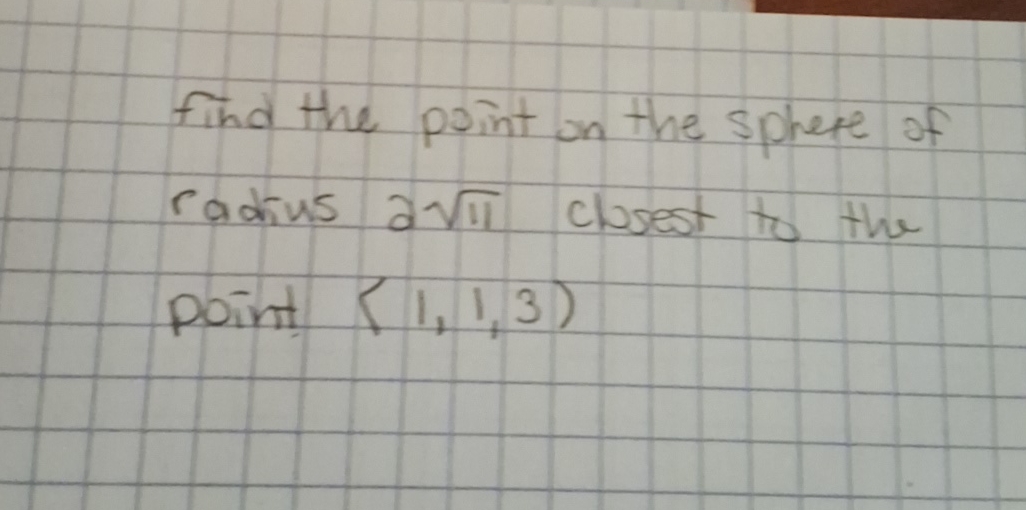 find the point on the sphere of
radius 2√11 closest to the
point (1, 1, 3)